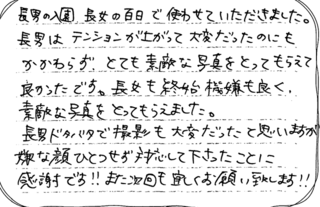 長男の入園 長女の百日で使わせていただきました。
長男はテンションが上がって大変だったのにも
かかわらず、とても素敵な写真をとってもらえて
良かったです。長女も終始機嫌も良く、
素敵な写真をとってもらえました。
長男ドタバタで撮影も大変だったと思いますが
嫌な顔ひとつせず対応して下さったことに
感謝です!!また次回も宜しくお願い致します!!